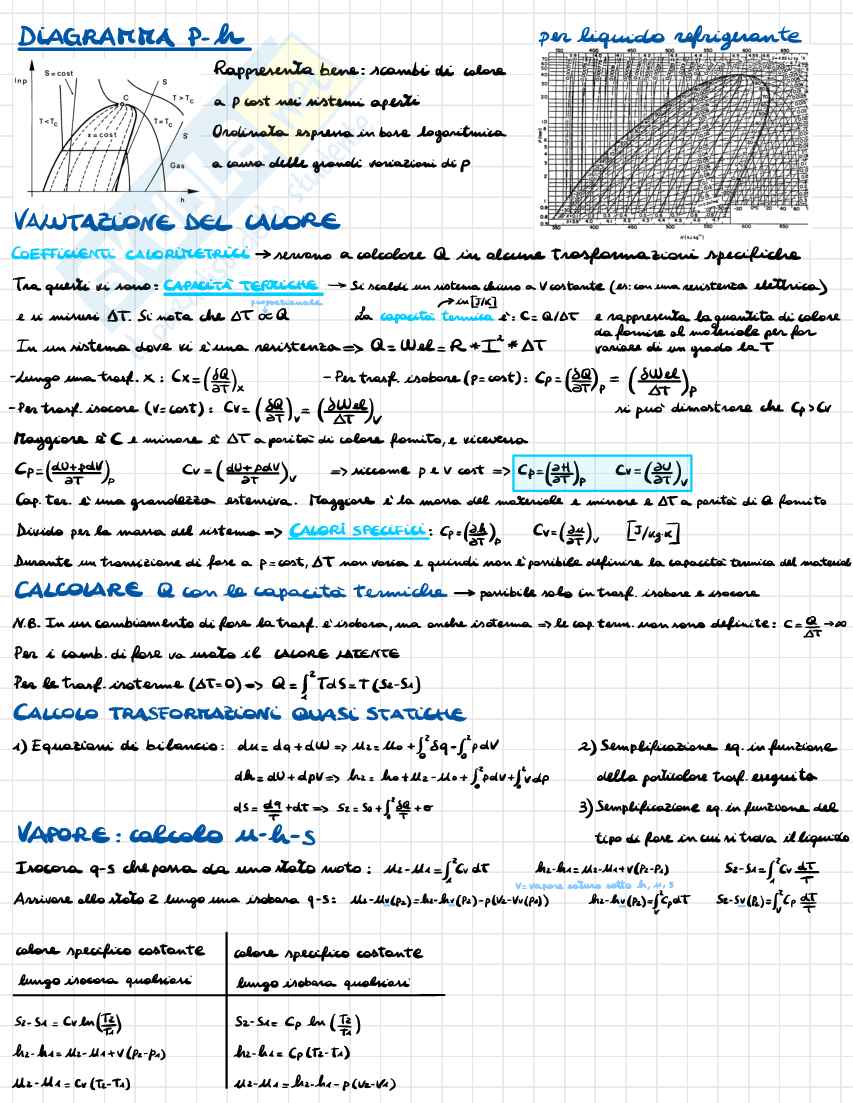 DIAGRAMMA P-h
per liquido refrigerante
ln p
S=cost
S
T>Tc
C
T<Tc
T=Tc
x=cost
S
Gas
h
Rappresenta bene: scambi di calore
a p cost nei sistemi aperti
Ordinata espressa in base logaritmica
a causa delle grandi variazioni di p
VALUTAZIONE DEL CALORE
COEFFICIENTI CALORIMETRICI → servono a calcolare Q in alcune trasformazioni specifiche
Tra questi vi sono: CAPACITÀ TERMICHE → Si scaldi un sistema chiuso a V costante (es: con una resistenza elettrica)
proporzionale
in [J/K]
e si misuri ΔT. Si nota che ΔT ∝ Q La capacità termica è: C = Q/ΔT e rappresenta la quantità di calore
da fornire al materiale per far
variare di un grado la T
In un sistema dove vi è una resistenza => Q = Wel = R * I² * ΔT
-Lungo una trasf. x: Cx = (δQ/∂T)x -Per trasf. isobare (p=cost): Cp = (δQ/∂T)p = (δWel/ΔT)p
-Per trasf. isocore (v=cost): Cv = (δQ/∂T)v = (δWel/ΔT)v si può dimostrare che Cp>Cv
Maggiore è C e minore è ΔT a parità di calore fornito, e viceversa
Cp = (dU+pdV/∂T)p Cv = (dU+pdV/∂T)v => siccome p e v cost => Cp = (∂H/∂T)p Cv = (∂U/∂T)v
Cap. ter. è una grandezza estensiva. Maggiore è la massa del materiale e minore e ΔT a parità di Q fornito
Divido per la massa del sistema => CALORI SPECIFICI: Cp = (∂h/∂T)p Cv = (∂u/∂T)v [J/kg·K]
Durante un transizione di fase a p=cost, ΔT non varia e quindi non è possibile definire la capacità termica del material
CALCOLARE Q con le capacità termiche → possibile solo in trasf. isobare e isocore
N.B. In un cambiamento di fase la trasf. è isobara, ma anche isoterma => le cap. term. non sono definite: C = Q/ΔT → ∞
Per i camb. di fase va usato il CALORE LATENTE
Per le trasf. isoterme (ΔT=0) => Q = ∫₁² TdS = T(S2-S1)
CALCOLO TRASFORMAZIONI QUASI STATICHE
1) Equazioni di bilancio: du = dq + dW => u2 = u0 + ∫₀² δq - ∫₀² pdV
2) Semplificazione eq. in funzione
dh = dU + dpV => h2 = h0 + u2 - u0 + ∫₀² pdv + ∫₀² vdp
della particolare trasf. eseguita
dS = dq/T + dσ => S2 = S0 + ∫₀² δq/T + σ
3) Semplificazione eq. in funzione del
tipo di fase in cui si trova il liquido
VAPORE: calcolo u-h-s
Isocora q-s che passa da uno stato noto: u2-u1 = ∫₁² Cv dT h2-h1 = u2-u1+v(p2-p1) S2-S1 = ∫₁² Cv dT/T
V= vapore saturo sotto h, u, s
Arrivare allo stato 2 lungo una isobara q-s: u2-uv(p2) = h2-hv(p2)-p(v2-vv(p2)) h2-hv(p2) = ∫ᵥ² CpdT S2-Sv(p2) = ∫ᵥ² Cp dT/T
calore specifico costante
lungo isocora qualsiasi
S2-S1 = Cv ln(T2/T1)
h2-h1 = u2-u1+v(p2-p1)
u2-u1 = Cv(T2-T1)
calore specifico costante
lungo isobara qualsiasi
S2-S1 = Cp ln(T2/T1)
h2-h1 = Cp(T2-T1)
u2-u1 = h2-h1-p(v2-v1)